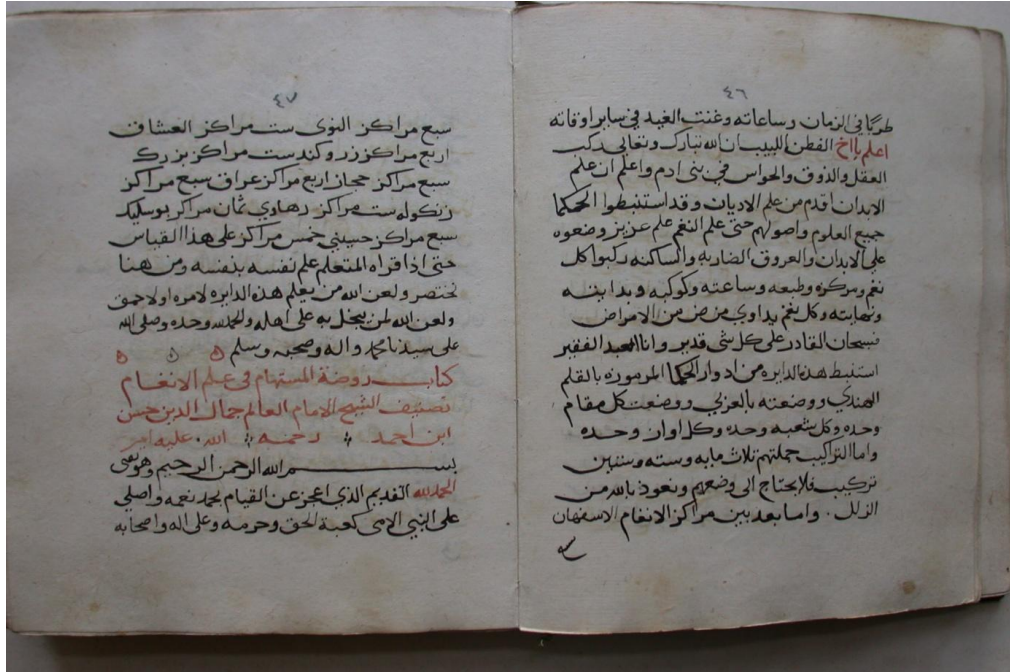 ٤٦
طربا في الزمان وساعاته وغنت الغيد في ساير اوقاته
اعلم يا اخ الفطن اللبيب ان الله تبارك وتعالى ركب
العقل والذوق والحواس في بنى ادم واعلم ان علم
الابدان اقدم من علم الاديان وقد استنبطوا الحكما
جميع العلوم واصولهم حتى علم النغم علم عزيز وضعوه
على الابدان والعروق الضاربه والساكنه ركبوا كل
نغم ومركزه وطبعه وساعته وكوكبه وبدايته
ونهايته وكل نغم يداوي مرض من الامراض
فسبحان القادر على كل شى قدير وانا العبد الفقير
استنبط هذه الدايره من ادوار الحكما المرموزه بالقلم
الهندي ووضعته بالعربي ووضعت كل مقام
وحده وكل شعبه وحده وكل اواز وحده
واما التراكيب جملتهم ثلاث مايه وسته وستين
تركيب فلا يحتاج الى وضعهم ونعوذ بالله من
الزلل . واما بعد بين مراكز الانغام الاسفهان
٤٧
سبع مراكز النوى ست مراكز العشاق
اربع مراكز زروكند ست مراكز بزرك
سبع مراكز حجاز اربع مراكز عراق سبع مراكز
زنكوله ست مراكز رهاوي ثمان مراكز بوسليك
سبع مراكز حسينى خمس مراكز على هذا القياس
حتى اذا قراه المتعلم علم نفسه بنفسه ومن هنا
نختصر ولعن الله من يعلم هذه الدايره لامره اولاحمق
ولعن الله لمن يبخل به على اهله والحمد لله وحده وصلى الله
على سيدنا محمد واله وصحبه وسلم ٥ ٥ ٥
كتاب روضة المستهام في علم الانغام
تصنيف الشيخ الامام العالم جمال الدين حسن
ابن احمد رحمة الله عليه
بسم الله الرحمن الرحيم وهو ثقتى
الحمد لله القديم الذي اعجز عن القيام بحمد نعمه واصلي
على النبي الامى كعبة الحق وحرمه وعلى اله واصحابه